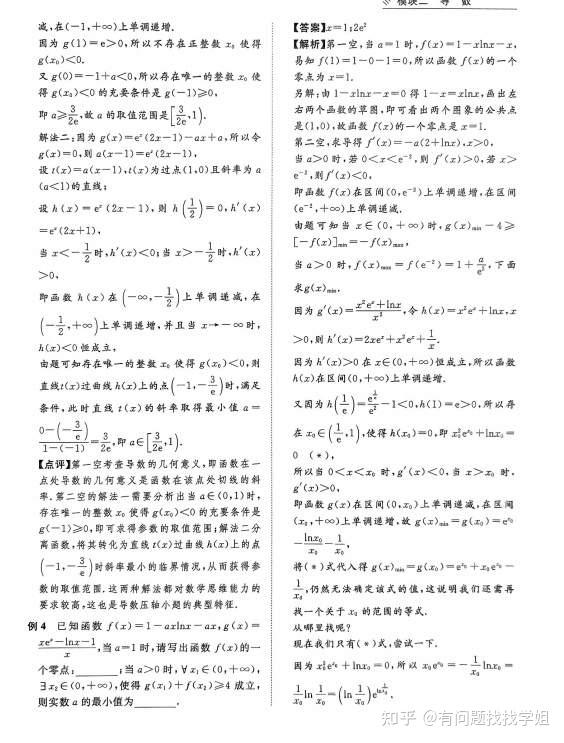 减,在(-1,+∞)上单调递增.
因为 g(1)=e>0,所以不存在正整数 x₀ 使得
g(x₀)<0.
又 g(0)=-1+a<0,所以存在唯一的整数 x₀ 使
得 g(x₀)<0 的充要条件是 g(-1)≥0,
即 a≥3/2e,故 a 的取值范围是[3/2e,1).
解法二:因为 g(x)=eˣ(2x-1)-ax+a,所以令
g(x)=0,则 a(x-1)=eˣ(2x-1),
设 t(x)=a(x-1),t(x)为过点(1,0)且斜率为 a
(a<1)的直线;
设 h(x)=eˣ(2x-1),则 h(1/2)=0,h′(x)
=eˣ(2x+1),
当 x<-1/2时,h′(x)<0;当 x>-1/2时,h′(x)
>0,
即函数 h(x)在(-∞,-1/2)上单调递减,在
(-1/2,+∞)上单调递增,并且当 x→-∞时,
h(x)<0 恒成立,
由题可知存在唯一的整数 x₀ 使得 g(x₀)<0,则
直线t(x)过曲线 h(x)上的点(-1,-3/e)时,满足
条件,此时直线 t(x)的斜率取得最小值 a=
(0-(-3/e))/(1-(-1))=3/2e,即 a∈[3/2e,1).
【点评】第一空考查导数的几何意义,即函数在一
点处导数的几何意义是函数在该点处切线的斜
率.第二空的解法一需要分析出当 a∈(0,1)时,
存在唯一的整数 x₀ 使得 g(x₀)<0 的充要条件是
g(-1)≥0,即可求得参数的取值范围;解法二分
离函数,将其转化为直线 t(x)过曲线 h(x)上的点
(-1,-3/e)时斜率最小的临界情况,从而获得参
数的取值范围.这两种解法都对数学思维能力的
要求较高,这也是导数压轴小题的典型特征.
例4 已知函数 f(x)=1-axlnx-ax,g(x)=
(xeˣ-lnx-1)/x,当 a=1 时,请写出函数 f(x)的一
个零点:______;当 a>0 时,∀x₁∈(0,+∞),
∃x₂∈(0,+∞),使得 g(x₁)+f(x₂)≥4 成立,
则实数 a 的最小值为______.
模块二 导 数
【答案】x=1;2e²
【解析】第一空,当 a=1 时,f(x)=1-xlnx-x,
易知 f(1)=1-0-1=0,所以函数 f(x)的一个
零点为 x=1.
另解:由 1-xlnx-x=0 得 1-x=xlnx,画出左
右两个函数的草图,即可看出两个图象的公共点
是(1,0),故函数 f(x)的一个零点是 x=1.
第二空,求导得 f′(x)=-a(2+lnx),x>0,
当 a>0 时,若 0<x<e⁻²,则 f′(x)>0,若 x>
e⁻²,则f′(x)<0,
即函数 f(x)在区间(0,e⁻²)上单调递增,在区间
(e⁻²,+∞)上单调递减.
由题可知当 x∈(0,+∞)时,g(x)min-4≥
[-f(x)]min=-f(x)max,
当 a>0 时,f(x)max=f(e⁻²)=1+a/e²,下面
求g(x)min.
因为 g′(x)=(x²eˣ+lnx)/x²,令 h(x)=x²eˣ+lnx,x
>0,则 h′(x)=2xeˣ+x²eˣ+1/x.
因为 h′(x)>0 在 x∈(0,+∞)恒成立,所以函数
h(x)在区间(0,+∞)上单调递增.
又因为 h(1/e)=e^(1/e)/e²-1<0,h(1)=e>0,所以存
在 x₀∈(1/e,1),使得 h(x₀)=0,即 x₀²e^x₀+lnx₀=
0 (*),
所以当 0<x<x₀ 时,g′(x)<0,当 x>x₀ 时,
g′(x)>0,
即函数 g(x)在区间(0,x₀)上单调递减,在区间
(x₀,+∞)上单调递增,故 g(x)min=g(x₀)=e^x₀
-lnx₀/x₀-1/x₀,
将(*)式代入得 g(x)min=g(x₀)=e^x₀+x₀e^x₀-
1/x₀,仍然无法确定该式的值,这说明我们还需再
找一个关于 x₀ 的范围的等式.
从哪里找呢?
现在我们只有(*)式,尝试一下.
因为 x₀²e^x₀+lnx₀=0,所以 x₀e^x₀=-1/x₀ lnx₀=
1/x₀ ln 1/x₀=(ln 1/x₀)e^(ln 1/x₀),
知乎 @有问题找找学姐